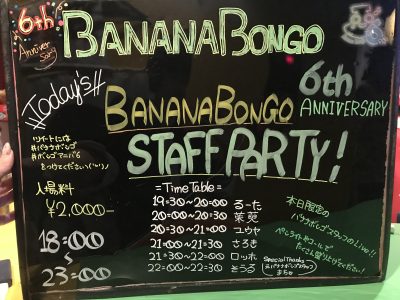 6th
Anniver
Sary
BANANABONGO
Today's!!
BANANABONGO
6th
ANNIVERSARY
STAFF PARTY!
ツイートには
#バナナボンゴ
#ボンゴアニバ6
をつけてください
入場料
¥2,000-
18:00
〜
23:00
=Time Table=
19:30〜20:00 るーた
20:00〜20:30 茉苑
20:30〜21:00 ユウヤ
21:00〜21:30 さろき
21:30〜22:00 ロッホ
22:00〜22:30 そうる
本日限定の
バナナボンゴスタッフのLive!!
ペンライトやコールで
たくさん盛り上げてください!
Special Thanks
元バナナボンゴスタッフ